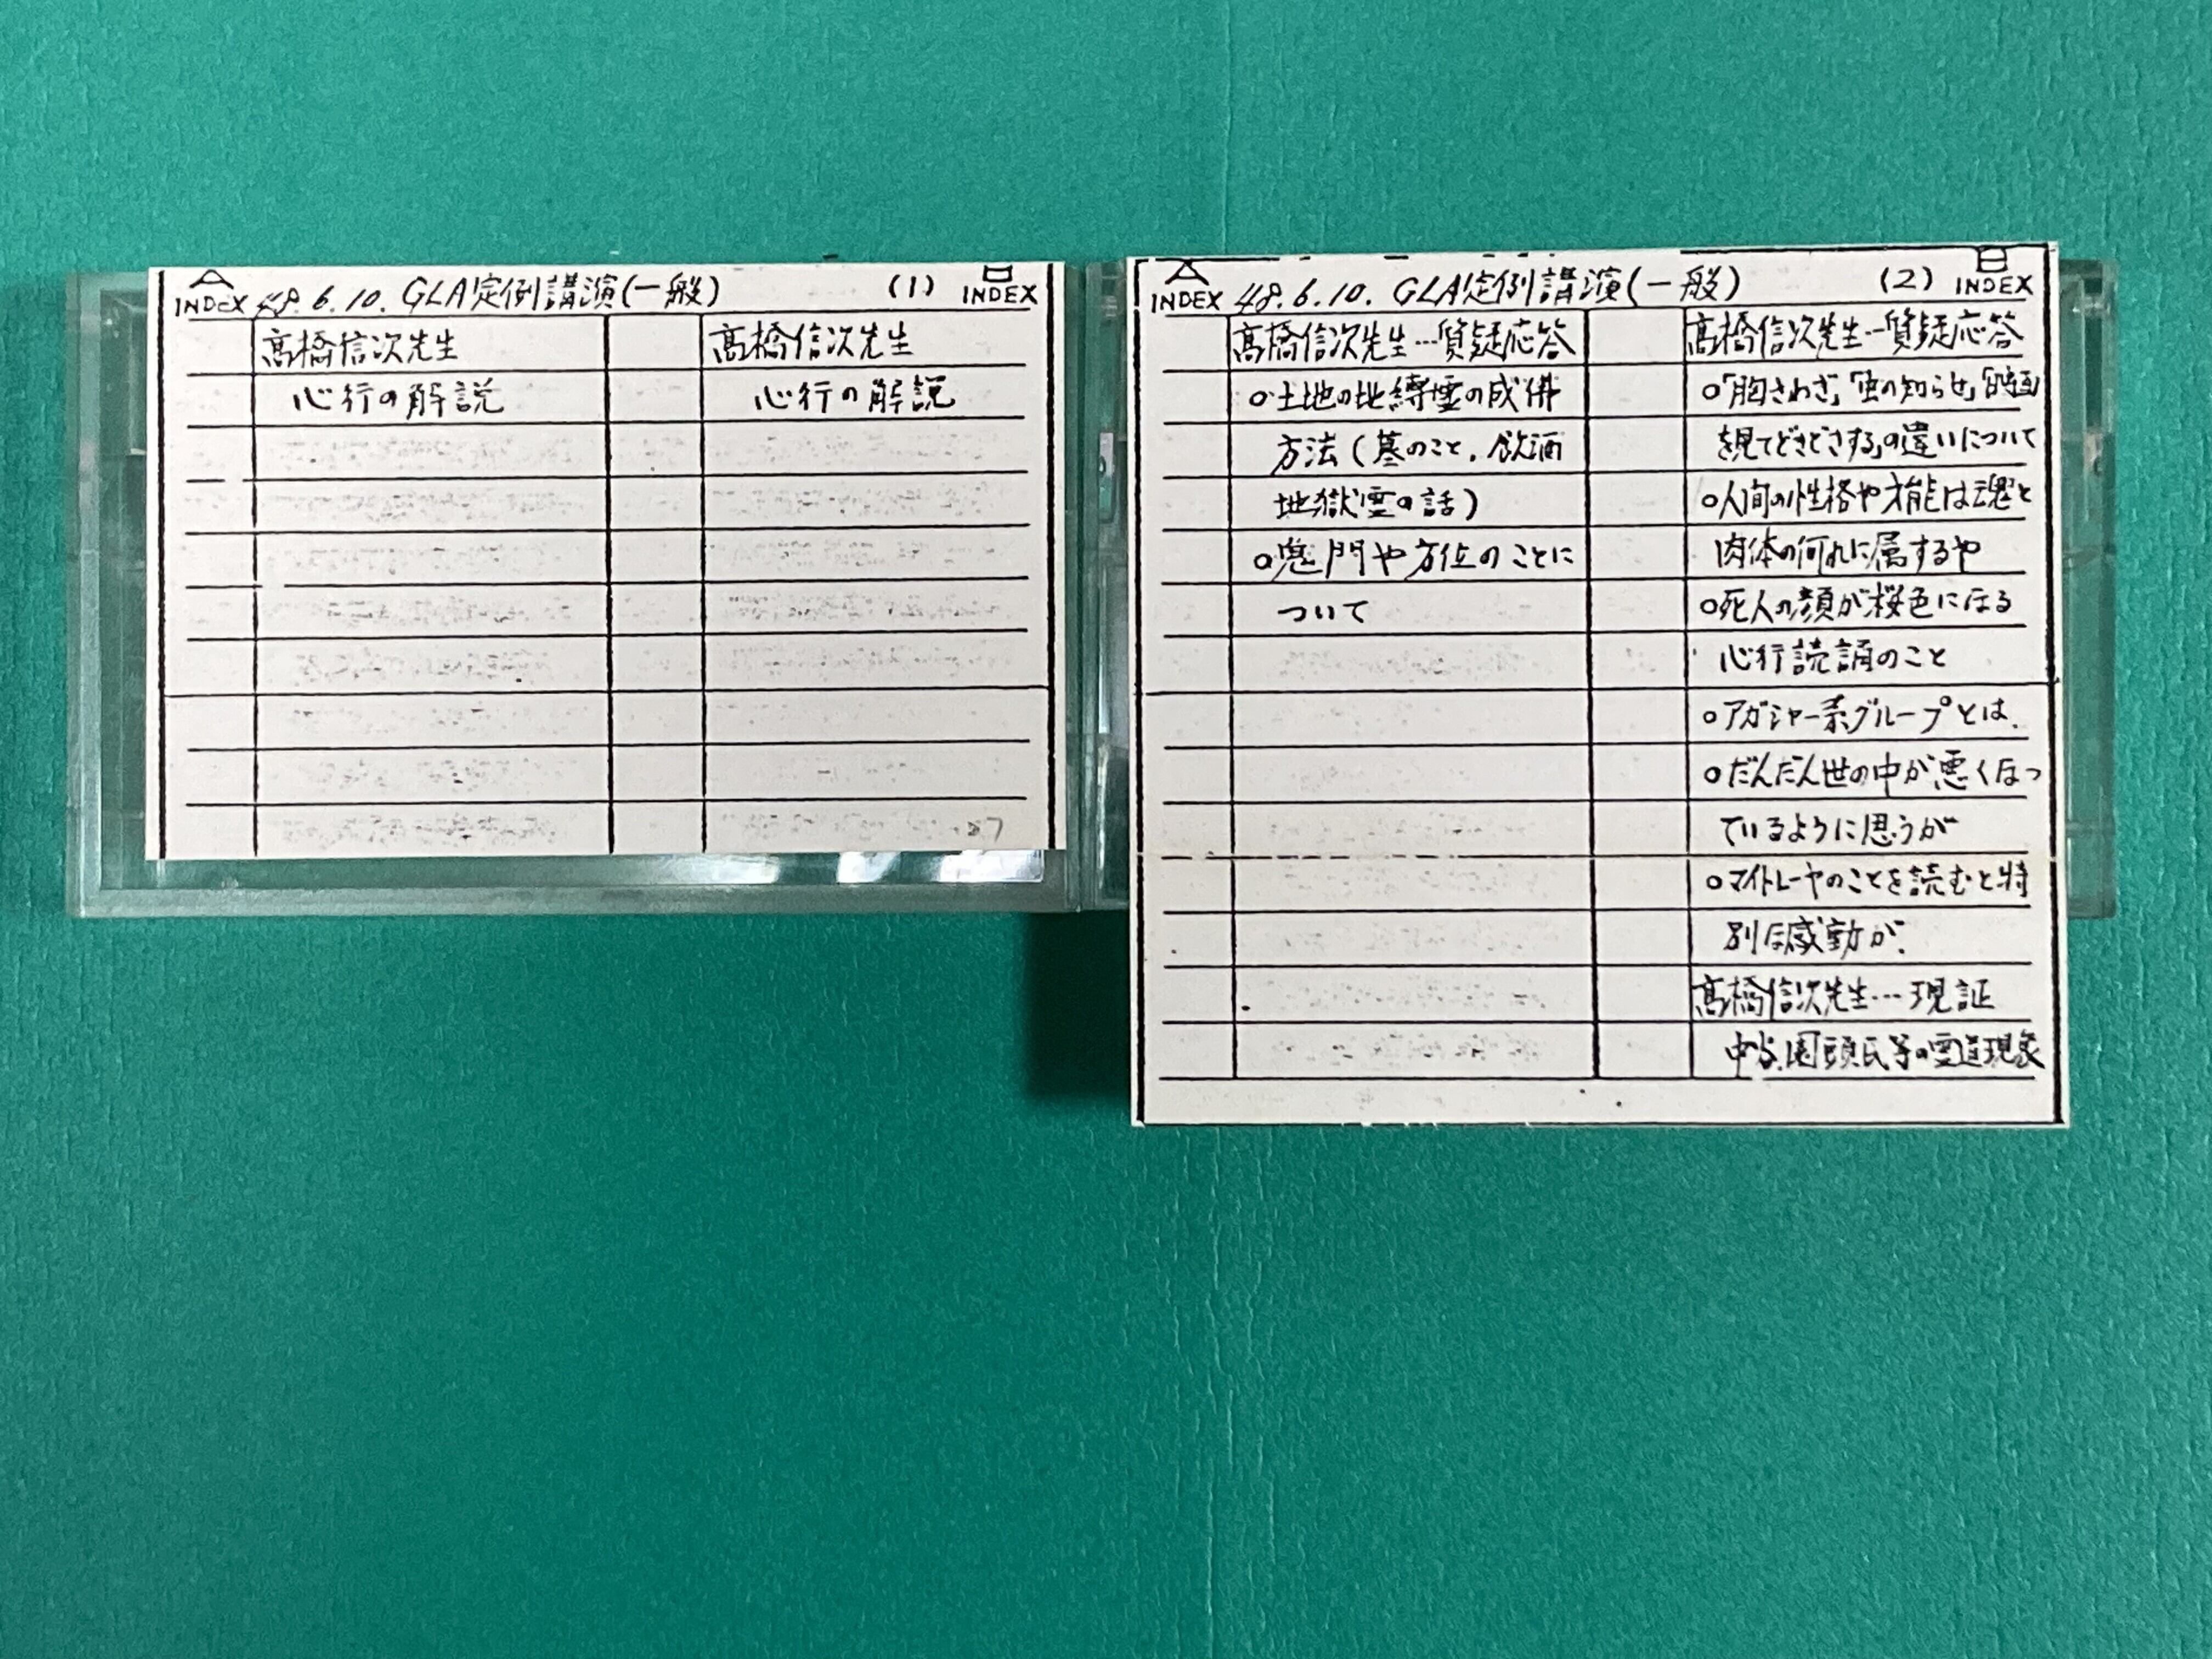 A INDEX 48.6.10. GLA定例講演(一般) (1) B INDEX
高橋信次先生
心行の解説
高橋信次先生
心行の解説
7
A INDEX 48.6.10. GLA定例講演(一般) (2) B INDEX
高橋信次先生…質疑応答
○土地の地縛霊の成佛
方法(墓のこと.飲酒
地獄霊の話)
○鬼門や方位のことに
ついて
高橋信次先生…質疑応答
○「胸さわぎ」「虫の知らせ」「映画
を見てどきどきする」の違いについて
○人間の性格や才能は魂と
肉体の何れに属するや
○死人の顔が桜色になる
心行読誦のこと
○アガシャー系グループとは.
○だんだん世の中が悪くなっ
ているように思うが
○マイトレーヤのことを読むと特
別な感動が.
高橋信次先生…現証
園頭氏等の霊道現象